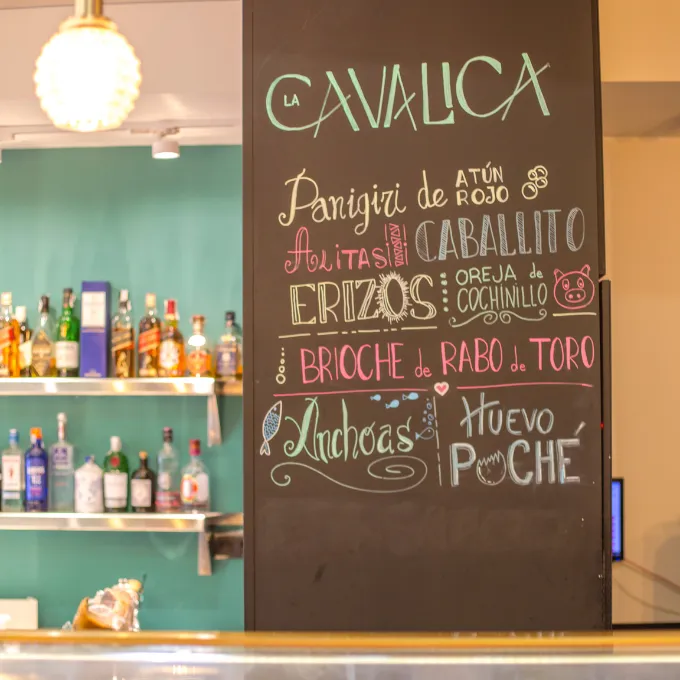 LA CAVALICA
Panigiri de ATÚN ROJO
ALITAS CABALLITO
ERIZOS OREJA de COCHINILLO
BRIOCHE de RABO de TORO
Anchoas HUEVO POCHÉ